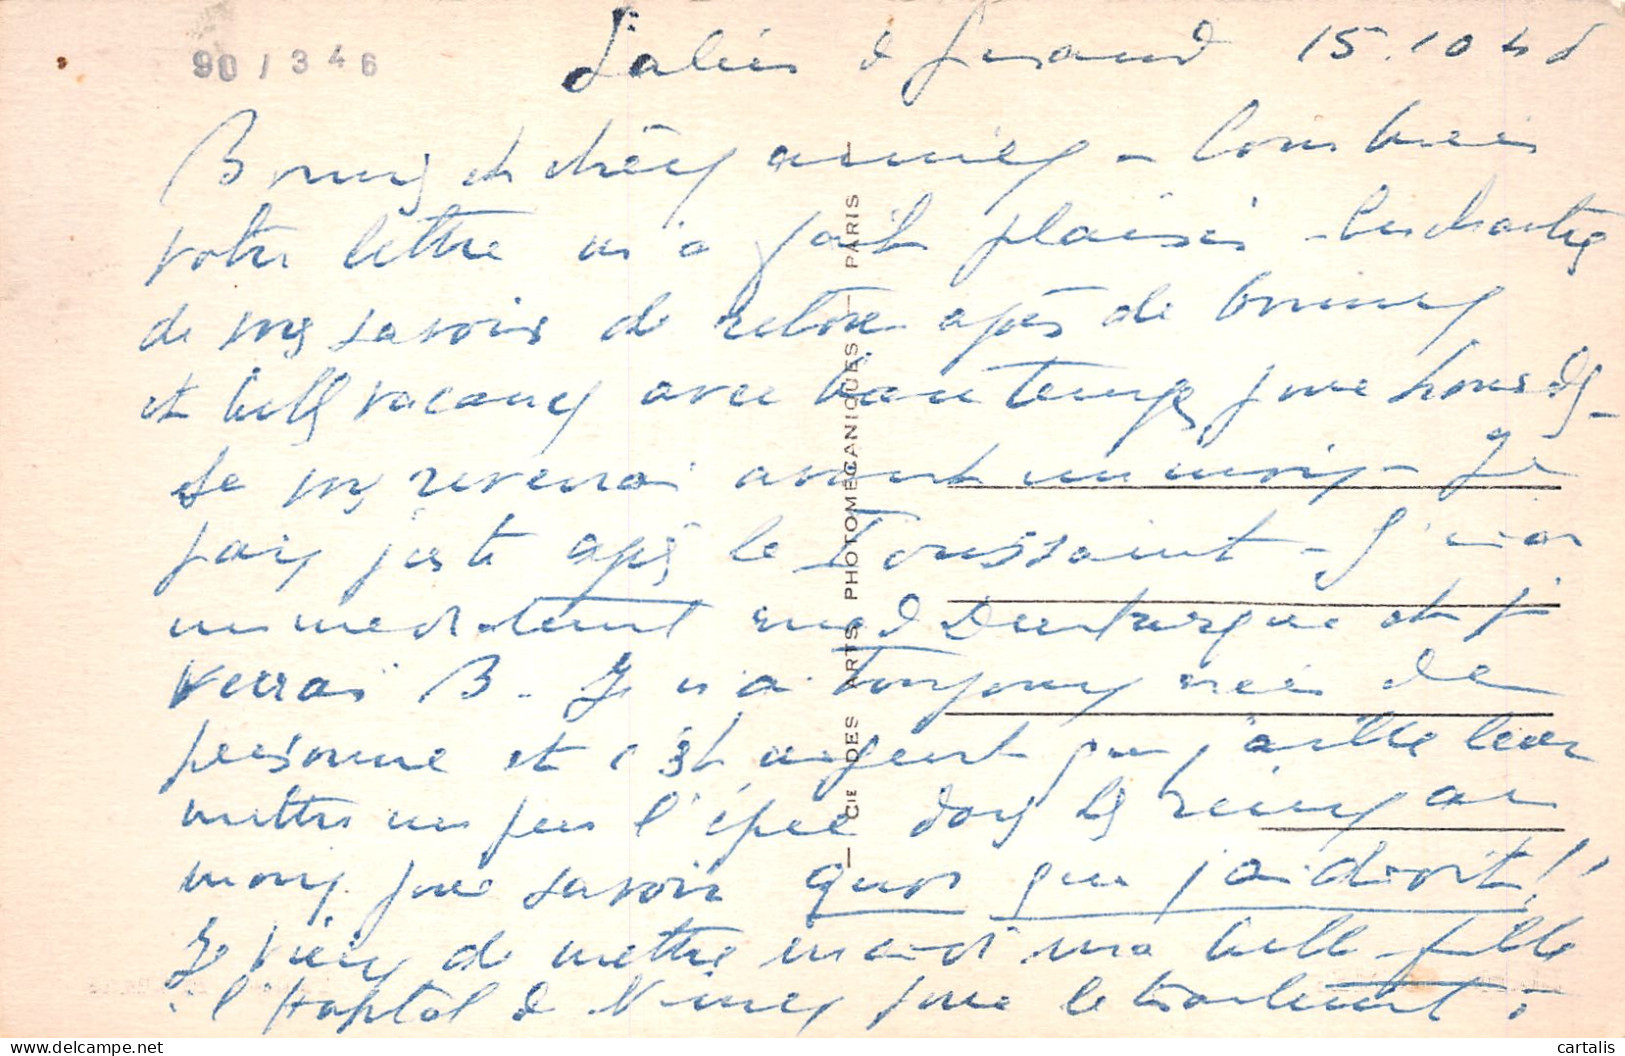 90 / 346
15.10
et chers amis -
votre lettre m'a fait plaisir - Enchantée
de vous savoir de retour après de bonnes
et belles vacances avec beau temps pour tous des
Je vous reverrai avant un mois - Je
pars juste après la Toussaint - J'irai
immédiatement rue de Dunkerque et je
verrai B. Je n'ai toujours rien de
personne et c'est urgent que j'aille leur
mettre un peu l'épée dans les reins au
moins pour savoir quoi que j'ai droit !!
Je viens de mettre mardi ma belle-fille
à l'Hopital de Nimes pour le traitement
— CIE DES ARTS PHOTOMECANIQUES — PARIS —
cartalis